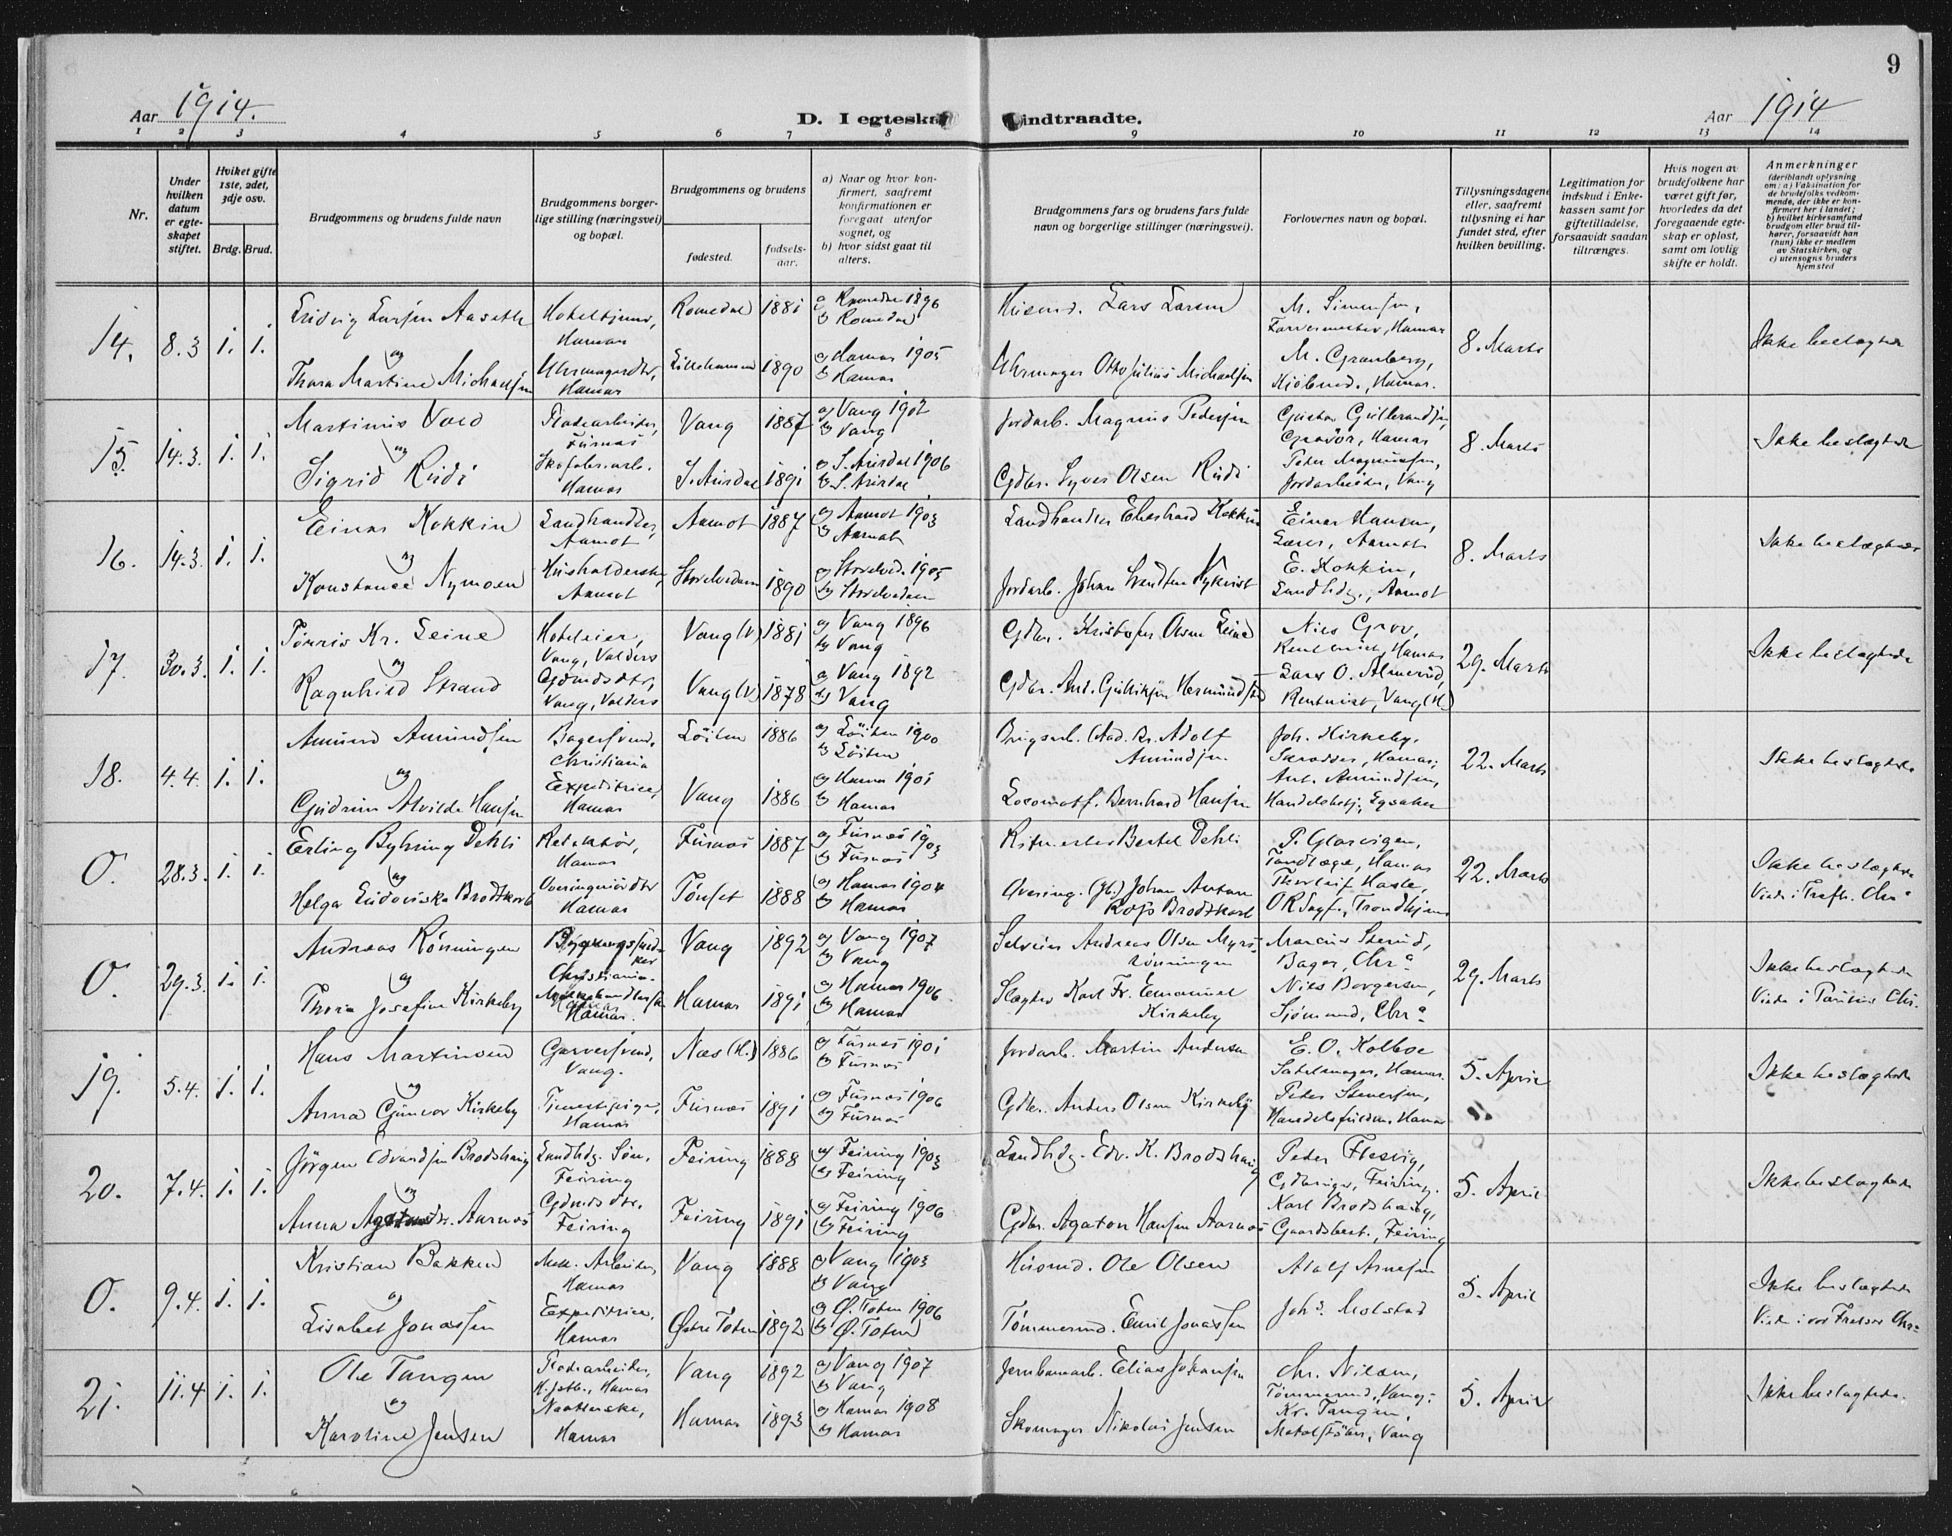 9
Aar 1914.
D. I egteskab indtraadte.
Aar 1914
1 2 3 4 5 6 7 8 9 10 11 12 13 14
Nr.
Under hvilken datum er egteskapet stiftet.
Hviket gifte 1ste, 2det, 3dje osv.
Brdg. Brud.
Brudgommens og brudens fulde navn
Brudgommens borgerlige stilling (næringsvei) og bopæl.
Brudgommens og brudens
fødested.
fødselsaar.
a) Naar og hvor konfirmert, saafremt konfirmationen er foregaat utenfor sognet, og
b) hvor sidst gaat til alters.
Brudgommens fars og brudens fars fulde navn og borgerlige stillinger (næringsvei).
Forlovernes navn og bopæl.
Tillysningsdagene eller, saafremt tillysning ei har fundet sted, efter hvilken bevilling.
Legitimation for indskud i Enkekassen samt for giftetilladelse, forsaavidt saadan tiltrænges.
Hvis nogen av brudefolkene har været gift før, hvorledes da det foregaaende egteskap er opløst, samt om lovlig skifte er holdt.
Anmerkninger
(deriblandt oplysning om: a) Vaksination for de brudefolks vedkommende, der ikke er konfirmert her i landet; b) hvilket kirkesamfund brudgom eller brud tilhører, forsaavidt han (hun) ikke er medlem av Statskirken, og c) utensogns bruders hjemsted
14. 8.3 1. 1. Ludvig Larsen Aaseth Hotelbjund, Hamar Romedal 1881 a) Romedal 1896 b) Romedal Husmd. Lars Larsen M. Simensen, Farvermester, Hamar 8. Marts Ikke beslægtede
og
Thora Martine Michaelsen Uhrmagerdtr, Hamar Lillehammer 1890 a) Hamar 1905 b) Hamar Uhrmager Otto Julius Michaelsen M. Granberg, Kjøbmd., Hamar.
15. 14.3. 1. 1. Martinus Vold Flodearbeider, Furnæs Vang 1887 a) Vang 1902 b) Vang Jordarb. Magnus Pedersen Gustav Gulbrandsen, Gravør, Hamar 8. Marts Ikke beslægtede
og
Sigrid Rudi Skofabr.arb. Hamar S. Aurdal 1891 a) S. Aurdal 1906 b) S. Aurdal Gdbr. Syver Olsen Rudi Peter Magnussen, Jordarbeider, Vang
16. 14.3. 1. 1. Einar Kokkin Landhandler, Aamot Aamot 1887 a) Aamot 1903 b) Aamot Landhandler Eberhard Kokkin Einar Hansen, Lærer, Aamot 8. Marts Ikke beslægtede
og
Konstance Nymoen Husholderske, Aamot Storelvdalen 1890 a) Storelvd. 1905 b) Storelvdalen Jordarb. Johan Svendsen Nykvist E. Kokkin, Landhdl., Aamot
17. 30.3. 1. 1. Tørris Kr. Leine Hoteleier, Vang, Valders Vang (V) 1881 a) Vang 1896 b) Vang Gdbr. Kristofer Olsen Leine Niels Grov, Rentenist, Hamar 29. Marts Ikke beslægtede
og
Ragnhild Strand Gdmdsdtr, Vang, Valders Vang (V) 1878 a) Vang 1892 b) Vang Gdbr. And. Gulliksen Hermundstad Lars O. Almerud, Rentenist, Vang (H.)
18. 4.4. 1. 1. Amund Amundsen Bagersvend, Christiania Løiten 1886 a) Løiten 1900 b) Løiten Brugsarb. Adolf Amundsen Joh. Kirkeby, Skrædder, Hamar; 22. Marts Ikke beslægtede
og
Gudrun Alvilde Hansen Expeditrice, Hamar Vang 1886 a) Hamar 1901 b) Hamar Locomotf. Bernhard Hansen Ant. Amundsen, Handelsbetj.
0. 28.3. 1. 1. Erling Byhring Dehli Redaktør, Hamar Furnæs 1887 a) Furnæs 1903 b) Furnæs Ritmester Bertel Dehli P. Glørvigen, Tandlæge, Hamar 22. Marts Ikke beslægtede
og
Helga Ludoviska Brodtkorb Overingeniördtr Hamar Tønset 1888 a) Hamar 1904 b) Hamar Overing. Johan Anton Brodtkorb Thorleif Hasle, ORSagf., Trondhjem Viede i Trefh. Chra
0. 29.3. 1. 1. Andreas Rønningen Christiania Vang 1892 a) Vang 1907 b) Vang Selveier Andreas Olsen Myrsrønningen Marcus Sterud, Bager, Chra. 29. Marts Ikke beslægtede
og
Thora Josefine Kirkeby Hamar. Hamar 1891 a) Hamar 1906 b) Hamar Slagter Karl Fr. Emanuel Kirkeby Niels Borgersen, Sjømand, Chra. Viede i Paulus Chr.
19. 5.4. 1. 1. Hans Martinsen Garversvend, Vang. Næs (H.) 1886 a) Furnæs 1901 b) Furnæs Jordarb. Martin Andersen E. O. Kolboe Sadelmager, Hamar. 5. April Ikke beslægtede
og
Anna Gunvor Kirkeby Tjenestepige, Hamar Furnæs 1891 a) Furnæs 1906 b) Furnæs Gdbr. Anders Olsen Kirkeby Peter Stenersen, Hamar
20. 7.4. 1. 1. Jørgen Edvardsen Brodshaug Landhdl. Søn, Feiring Feiring 1888 a) Feiring 1903 b) Feiring Landhdl. Edv. K. Brodshaug Peter Flesvig, Gdbruger, Feiring. 5. April Ikke beslægtede
og
Anna Agatonsdtr. Aarnæs Gdmds dtr. Feiring Feiring 1891 a) Feiring 1906 b) Feiring Gdbr. Agaton Hansen Aarnæs Karl Brodshaug, Gaardsbest., Feiring
0. 9.4. 1. 1. Kristian Bakken Mek. Arbeider, Hamar Vang 1888 a) Vang 1903 b) Vang Husmd. Ole Olsen Adolf Arnesen 5. April Ikke beslægtede
og
Lisabet Jonassen Expeditrice, Hamar Østre Toten 1892 a) Ø. Toten 1906 b) Ø. Toten Tømmermd. Emil Jonassen Johs. Molstad Viede i vor Frelser Chra
21. 11.4. 1. 1. Ole Tangen Flodearbeider, Hamar Vang 1892 a) Vang 1907 b) Vang Jernbanearb. Elias Johansen Chr. Nilsen, Tømmermd, Vang; 5. April Ikke beslægtede.
og
Karoline Jensen Hamar Hamar 1893 a) Hamar 1908 b) Hamar Skomager Nikolai Jensen Kr. Tangen, Vang